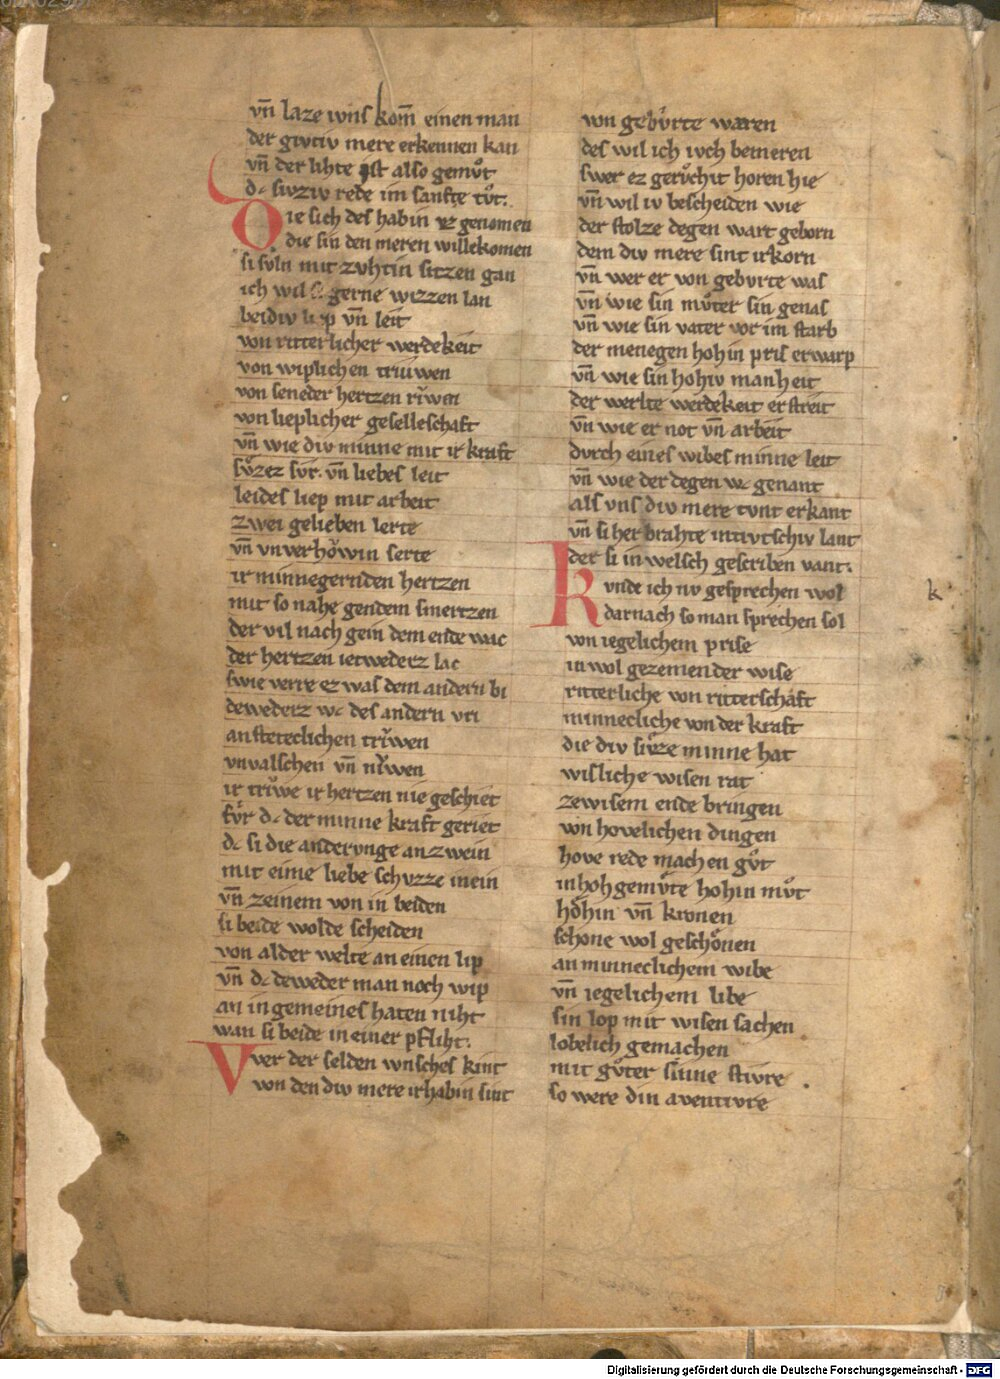 vn̄ laze vns kom̄ einen man
der givtiv mere erkennen kan
vn̄ der lihte ist also gemuͦt
dc sivziv rede im sanfte tuͦt.
Die sich des habin vz genomen
die sin den meren willekomen
si svln mit zvhtin sitzen gan
ich wil si gerne wizzen lan
beidiv liep vn̄ leit
von ritterlicher werdekeit
von wiplichen triuwen
von seneder hertzen rivwen
von lieplicher geselleschaft
vn̄ wie div minne mit ir kraft
svͦzez svr. vn̄ liebes leit
leides liep mit arbeit
zwei gelieben lerte
vn̄ vnverhoͮwin serte
ir minnegernden hertzen
mit so nahe gendem smertzen
der vil nach gein dem ende wac
der hertzen ietwederz lac
swie verre ez was dem andern bi
dewederz wc des andern vri
an steteclichen trivwen
vnvalschen vn̄ nivwen
ir trivwe ir hertzen nie geschiet
fvͤr dc der minne kraft geriet
dc si die anderunge an zwein
mit eime liebe schvzze inein
vn̄ zeinem von in beiden
si beide wolde scheiden
von alder welte an einen lip
vn̄ dc deweder man noch wip
an in gemeines haten niht
wan si beide in einer pfliht.
Wer der selden wnsches kint
von den div mere irhabin sint
von gebvͤrte waren
des wil ich ivch bemeren
swer ez geruͦchit horen hie
vn̄ wil iv bescheiden wie
der stolze degen wart geborn
dem div mere sint irkorn
vn̄ wer er von gebvrte was
vn̄ wie sin muͦter sin genas
vn̄ wie sin vater vor im starb
der menegen hohin pris erwarp
vn̄ wie sin hohiv manheit
der werlte werdekeit erstreit
vn̄ wie er not vn̄ arbeit
dvrch eines wibes minne leit
vn̄ wie der degen wc genant
als vns div mere tvnt erkant
vn̄ si her brahte in tivtschiv lant
der si in welsch gescriben vant.
Kvnde ich nv gesprechen wol
darnach so man sprechen sol
von iegelichem prise
in wol gezemender wise
ritterliche von ritterschaft
minnecliche von der kraft
die div svͤze minne hat
wisliche wisen rat
zewisem ende bringen
von hovelichen dingen
hove rede machen guͦt
in hohgemvͤte hohin muͦt
hoͤhin vn̄ kronen
schone wol geschoͤnen
an minneclichem wibe
vn̄ iegelichem libe
sin lop mit wisen sachen
lobelich gemachen
mit guͦter sinne stivre
so were din aventivre
k
Digitalisierung gefördert durch die Deutsche Forschungsgemeinschaft - DFG